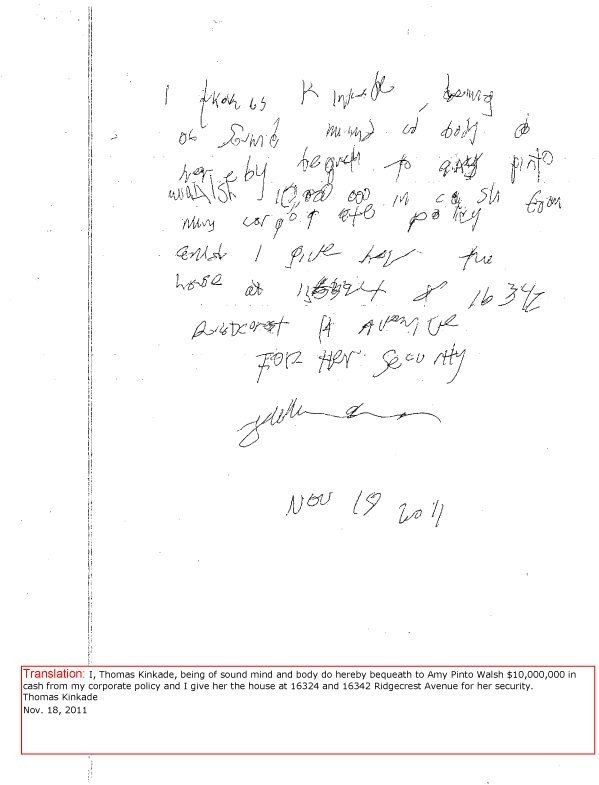 I Thomas Kinkade, being
of sound mind and body do
hereby bequeath to amy pinto
walsh 10,000 000 in cash from
my corporate policy
and I give her the
house at & 16342
Avenue
FOR HER SECURITY
NOV 18 2011
Translation: I, Thomas Kinkade, being of sound mind and body do hereby bequeath to Amy Pinto Walsh $10,000,000 in
cash from my corporate policy and I give her the house at 16324 and 16342 Ridgecrest Avenue for her security.
Thomas Kinkade
Nov. 18, 2011